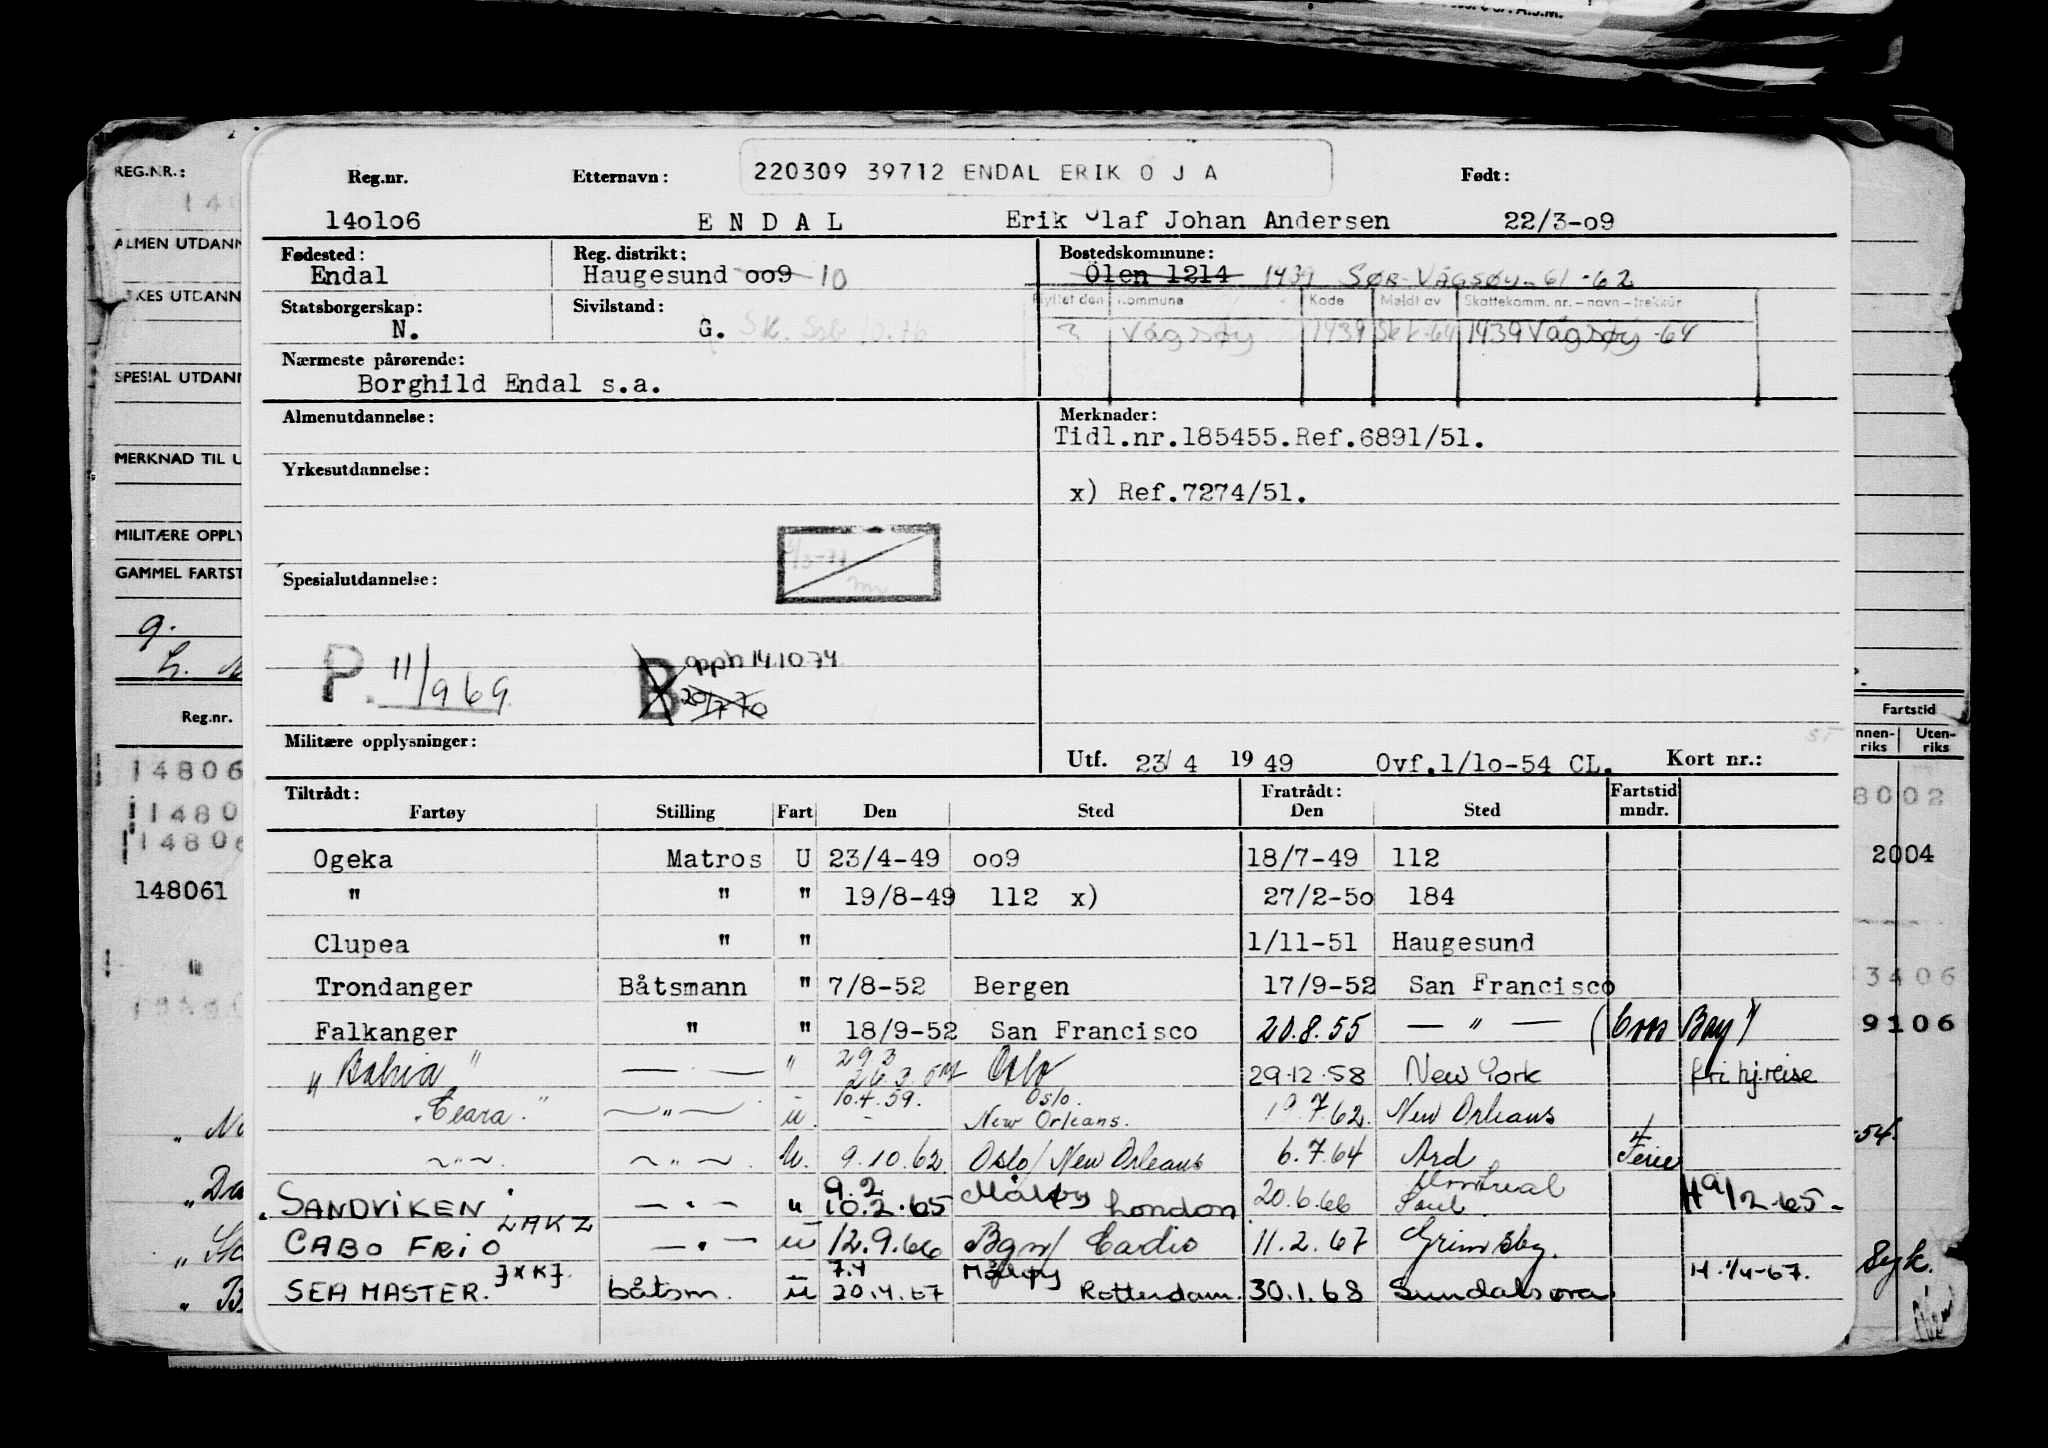 REG.NR.:
ALMEN UTDANN
KES UTDANN
SPESIAL UTDANN
MERKNAD TIL U
MILITÆRE OPPLY
GAMMEL FARTST
Reg.nr.
14806
1480
14806
148061
Reg.nr. Etternavn: 220309 39712 ENDAL ERIK O J A Født:
14o1o6 E N D A L Erik Olaf Johan Andersen 22/3-o9
Fødested: Reg. distrikt: Bostedskommune:
Endal Haugesund oo9 10 Ölen 1214 1439 SØR-VÅGSØY-61-62
Statsborgerskap: Sivilstand: Flyttet den Kommune Kode Meldt av Skattekomm. nr. – navn – trekkår
N. G. Vågsøy 1439 Skk-64 1439 Vågsøy -64
Nærmeste pårørende:
Borghild Endal s.a.
Almenutdannelse: Merknader:
Tidl.nr.185455.Ref.6891/51.
Yrkesutdannelse:
x) Ref.7274/51.
Spesialutdannelse:
P. 11/969 B opph 14.10.74
20/7-70
Militære opplysninger:
Utf. 23/ 4 19 49 Ovf.1/1o-54 CL. Kort nr.:
Tiltrådt: Fratrådt: Fartstid
Fartøy Stilling Fart Den Sted Den Sted mndr.
Ogeka Matros U 23/4-49 oo9 18/7-49 112
" " " 19/8-49 112 x) 27/2-5o 184
Clupea " " 1/11-51 Haugesund
Trondanger Båtsmann " 7/8-52 Bergen 17/9-52 San Francisco
Falkanger " " 18/9-52 San Francisco 20.8.55 — " — (Coos Bay)
"Bahia" — " — " 29.3 26.3. Oslo 29.12.58 New York fri hj.reise
"Ceara." — " — u. 10.4.59. Oslo. New Orleans. 19.7.62. New Orleans
— " — — " — u. 9.10.62 Oslo/New Orleans 6.7.64 Ard 4 Ferie
SANDVIKEN. — " — " 9.2 10.2.65 Måløy London 20.6.66 Montreal H 9/2-65-
CABO FRIO LAKZ — " — u 12.9.66 Bgn/ Cadis 11.2.67 Grimsby.
SEA MASTER. JXKJ. båtsm. u 7.4 20.4.67 Måløy Rotterdam. 30.1.68 Sundalsøra H.
Fartstid
nnen-riks Uten-riks
8002
2004
3406
9106
-54.
Syk.